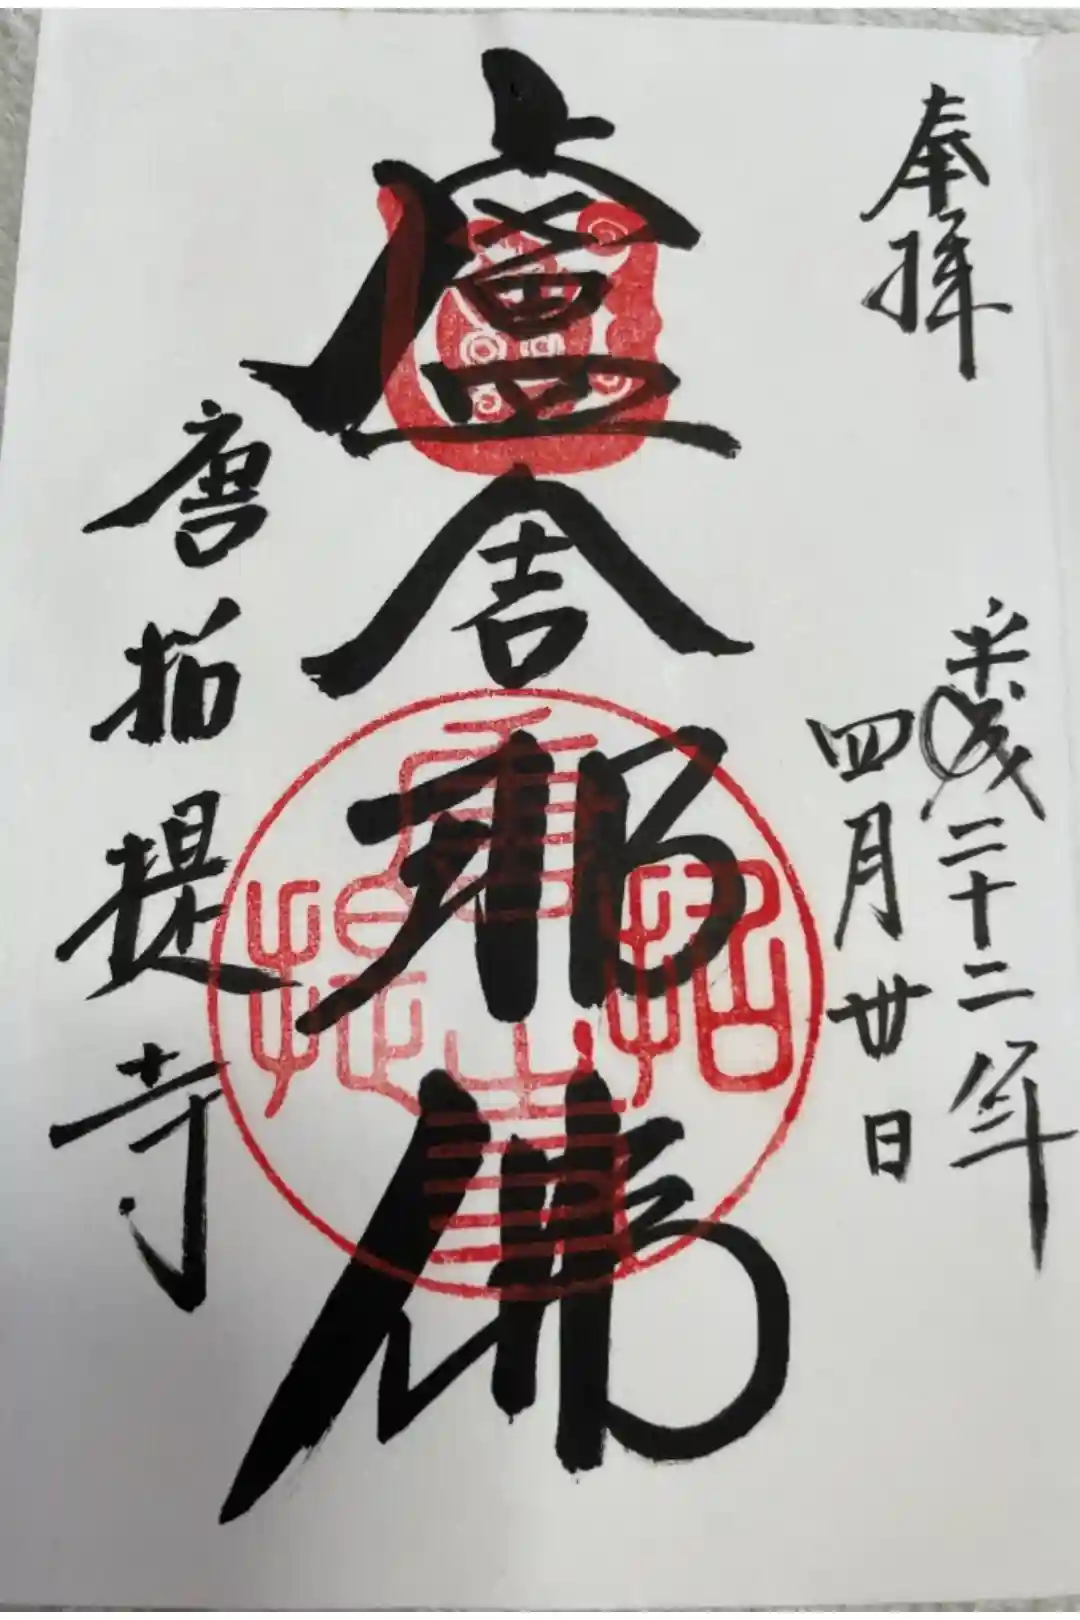 奉拝
平成二十二年
四月丗日
盧舎那佛
唐招提寺